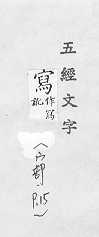 五經文字
寫作寫訛
(宀部 P.15)